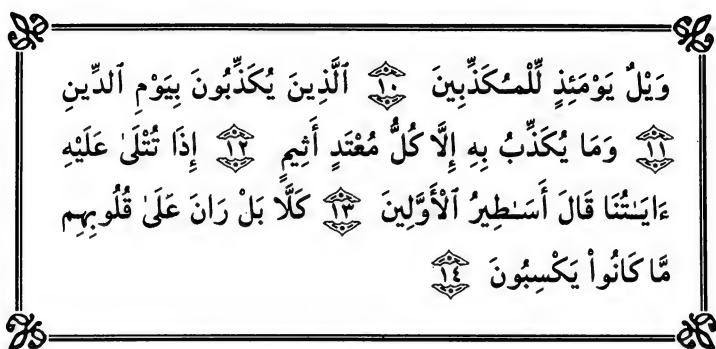 وَيْلٌ يَوْمَئِذٍ لِّلْمُكَذِّبِينَ ١٠ ٱلَّذِينَ يُكَذِّبُونَ بِيَوْمِ ٱلدِّينِ
١١ وَمَا يُكَذِّبُ بِهِ إِلَّا كُلُّ مُعْتَدٍ أَثِيمٍ ١٢ إِذَا تُتْلَىٰ عَلَيْهِ
ءَايَـٰتُنَا قَالَ أَسَـٰطِيرُ ٱلْأَوَّلِينَ ١٣ كَلَّا بَلْ رَانَ عَلَىٰ قُلُوبِهِم
مَّا كَانُواْ يَكْسِبُونَ ١٤